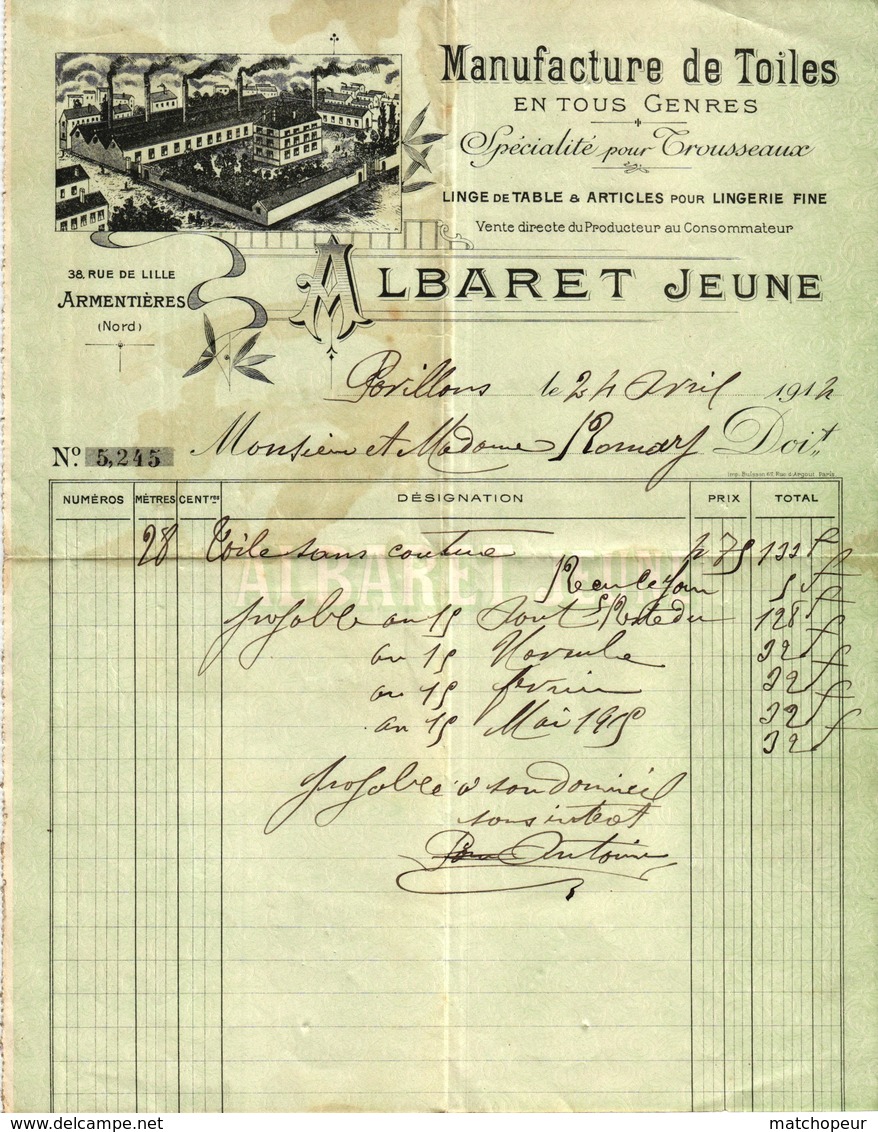 Manufacture de Toiles
EN TOUS GENRES
Spécialité pour Trousseaux
LINGE DE TABLE & ARTICLES POUR LINGERIE FINE
Vente directe du Producteur au Consommateur
38, RUE DE LILLE
ARMENTIÈRES
(Nord)
ALBARET JEUNE
le 24 Avril 1914
No. 5,245 Monsieur et Madame Doit
Imp. Buisson 67, Rue d'Argout Paris
NUMÉROS MÈTRES CENTres DÉSIGNATION PRIX TOTAL
28 Toile sans couture 133 f
ALBARET JEUNE
5 f
au 15 Aout Reste du 128 f
au 15 Novembe 32 f
au 15 fevrier 32 f
au 15 Mai 1915 32 f
32 f
a son domicil
sans interet
Antoine
delcampe.net
matchopeur